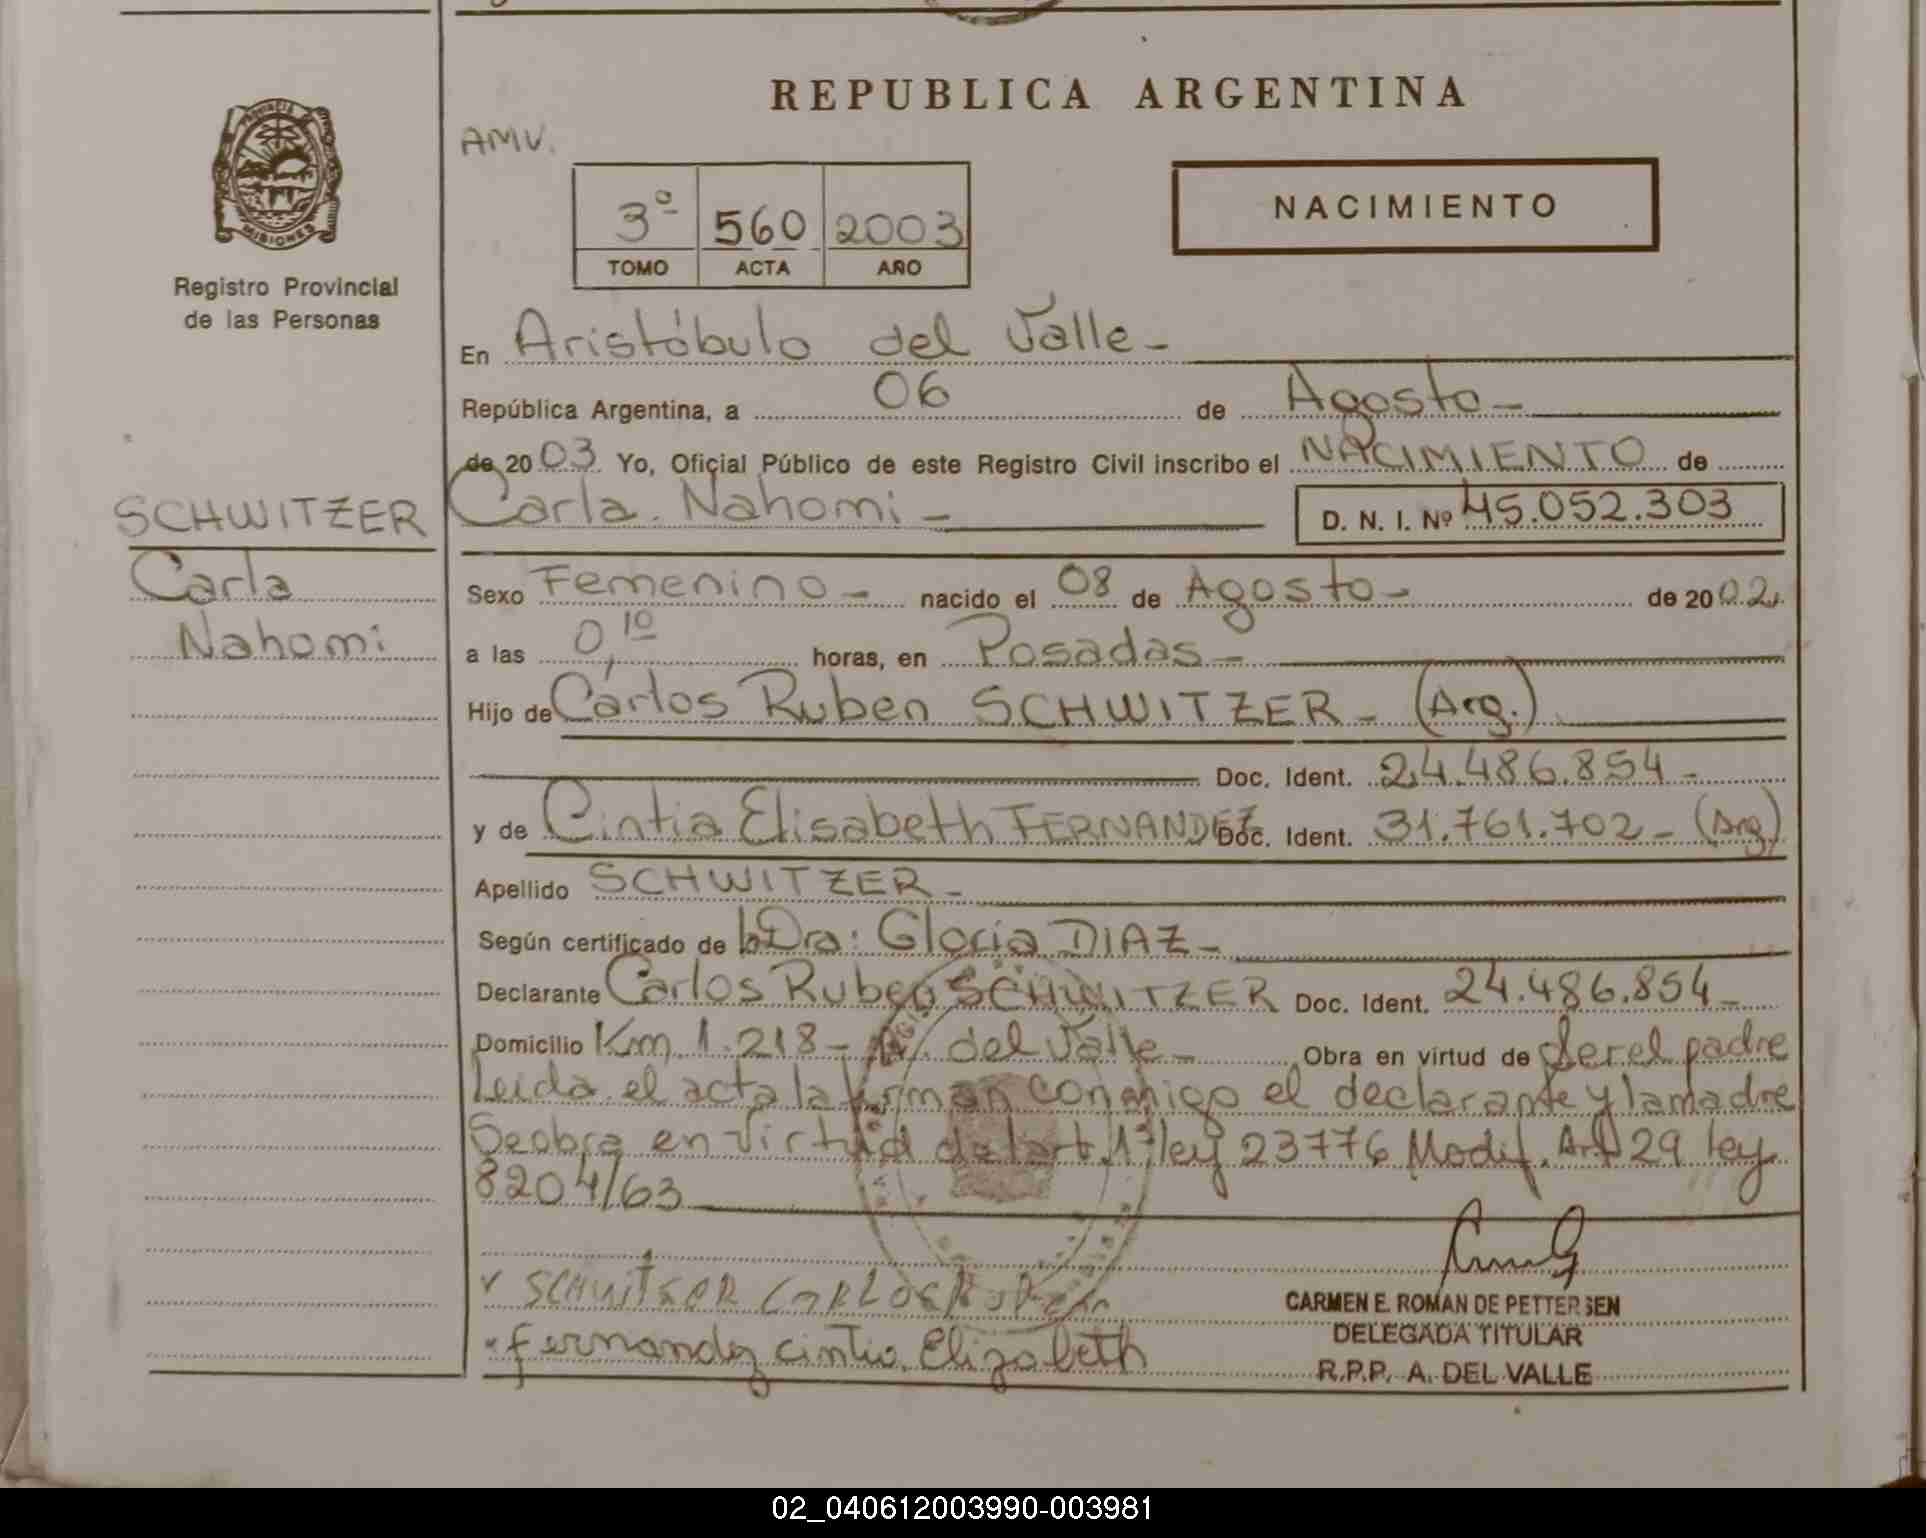 REPUBLICA ARGENTINA
AMV.
PROVINCIA DE
MISIONES
Registro Provincial
de las Personas
3º 560 2003
TOMO ACTA AÑO
NACIMIENTO
En Aristóbulo del Valle-
República Argentina, a 06 de Agosto-
de 2003 Yo, Oficial Público de este Registro Civil inscribo el NACIMIENTO de
Carla Nahomi- D. N. I. Nº 45.052.303
SCHWITZER
Carla
Nahomi
Sexo Femenino- nacido el 08 de Agosto- de 2002
a las 0,10 horas, en Posadas-
Hijo de Carlos Ruben SCHWITZER- (Arg.)
Doc. Ident. 24.486.854-
y de Cintia Elisabeth FERNANDEZ Doc. Ident. 31.761.702- (Arg)
Apellido SCHWITZER-
Según certificado de la Dra: Gloria DIAZ-
Declarante Carlos Ruben SCHWITZER Doc. Ident. 24.486.854-
Domicilio Km 1.218- A. del Valle- Obra en virtud de ser el padre
Leida el acta la firman conmigo el declarante y la madre
Se obra en virtud del art. 1º ley 23776 Modif. Art 29 ley
8204/63
SCHWITSER CARLOS RUBEN
fernandez cintia Elizabeth
CARMEN E. ROMAN DE PETTERSEN
DELEGADA TITULAR
R.P.P. A. DEL VALLE
02_040612003990-003981